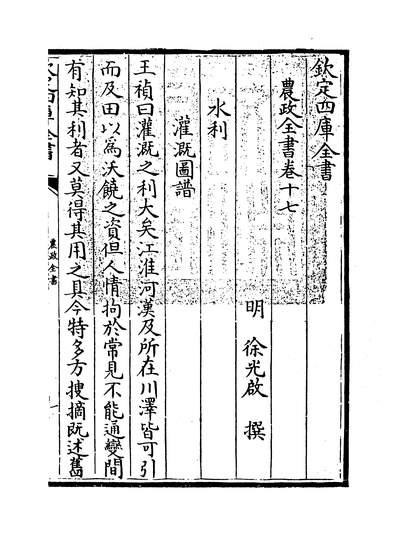 欽定四庫全書
農政全書卷十七
明 徐光啟 撰
水利
灌溉圖譜
王禎曰灌溉之利大矣江淮河漢及所在川澤皆可引
而及田以為沃饒之資但人情拘於常見不能通變間
有知其利者又莫得其用之具今特多方搜摘既述舊
農政全書